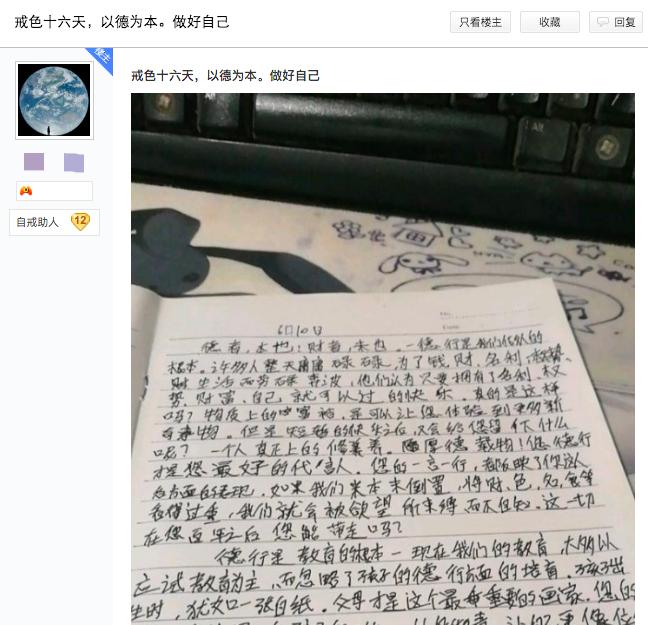 戒色十六天，以德为本。做好自己
只看楼主
收藏
回复
楼主
自戒助人 12
戒色十六天，以德为本。做好自己
Alt
6月10日
德者，本也；财者，末也。一德行是我们做人的
根本。许多人整天庸庸碌碌，为了钱，财，名利，权势，
财 生活而劳碌奔波，他们认为只要拥有了名利、权
势、财富、自己，就可以过的快乐。真的是这样
吗？物质上的丰富
但是短暂的快乐之后，又会给您留下什么
呢？一个人真正上的修养。厚德载物！您德行
才是您最好的代言人。您的一言一行，都反映了你这
方面的表现，如果我们末本末倒置，将财、色、名、食等
看得过重，我们就会被欲望所束缚而不自知。这一切
在您百年之后您能带走吗？
德行是教育的根本－现在我们的教育，大多以
应试教育为主，而忽略了孩子的德行方面的培育。孩子出
生时，犹如一张白纸。父母才是这个最重要的画家，您的